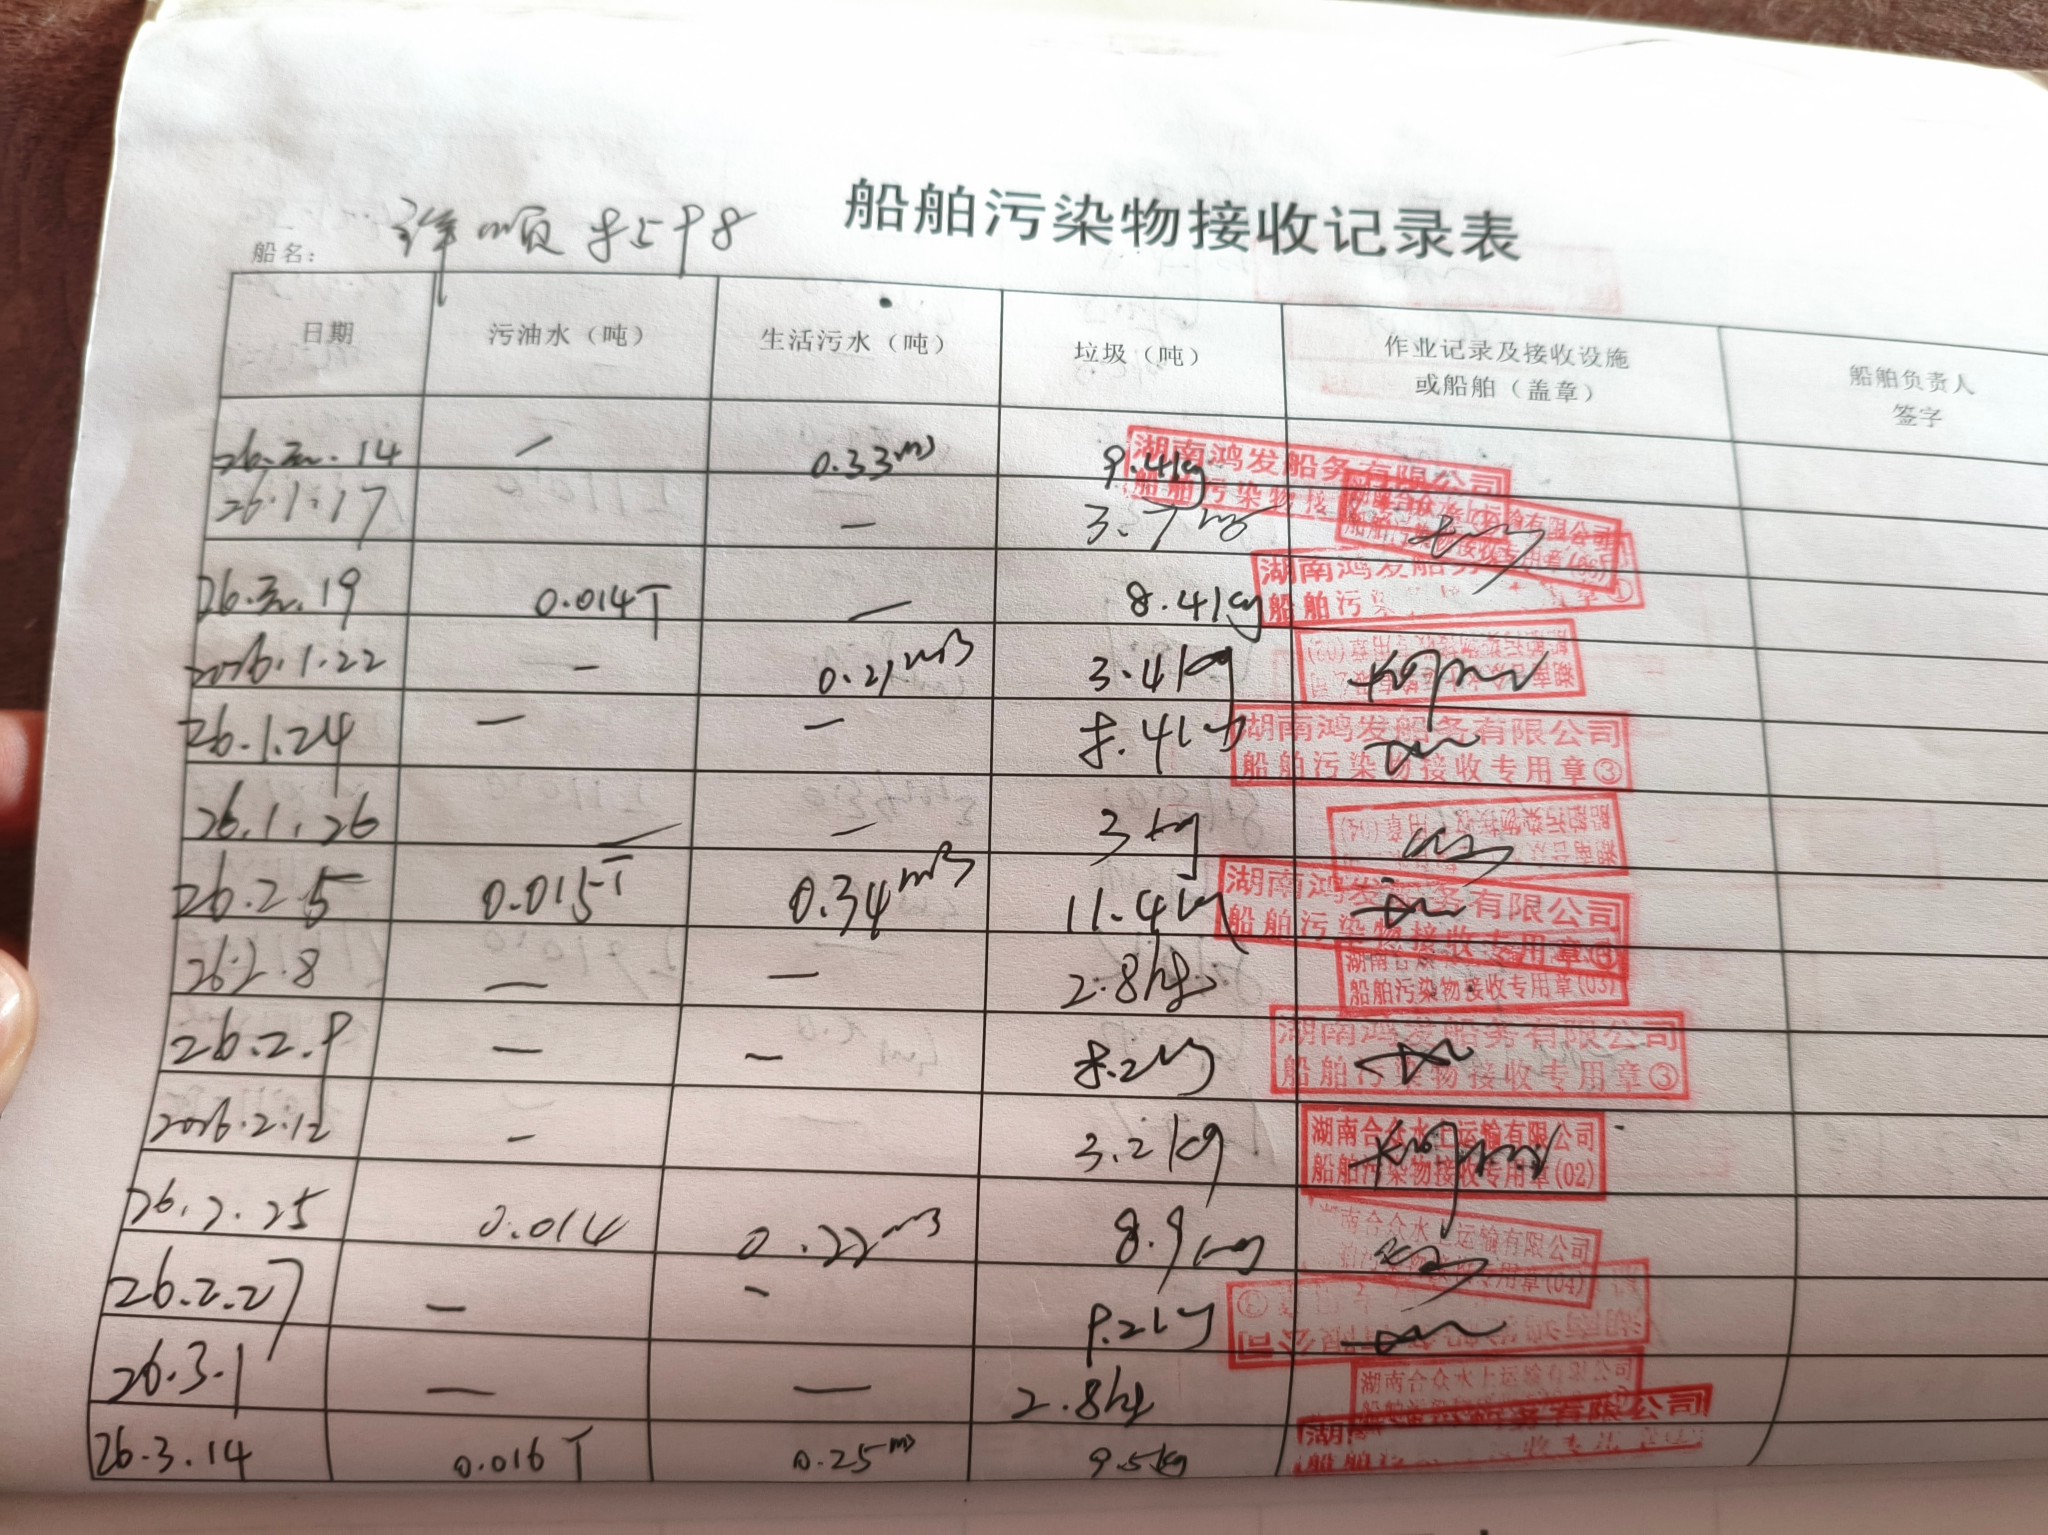 船舶污染物接收记录表
船名： 祥顺8598
日期 污油水（吨） 生活污水（吨） 垃圾（吨） 作业记录及接收设施或船舶（盖章） 船舶负责人签字
26.元.14 — 0.33m3 9.4kg 湖南鸿发船务有限公司
26.1.17 — 3.7kg 湖南合众水上运输有限公司 船舶污染物接收专用章(06)
26.元.19 0.014T — 8.4kg 湖南鸿发船务 船舶污
2026.1.22 — 0.21m3 3.4kg 船舶污染物接收专用章(02)
26.1.24 — — 8.4kg 湖南鸿发船务有限公司 船舶污染物接收专用章③
26.1.26 — — 3kg 船舶污染物接收专用章(04)
26.2.5 0.015T 0.34m3 11.4kg 湖南鸿发船务有限公司 船舶污染物接收专用章
26.2.8 — — 2.8kg 湖南合众 船舶污染物接收专用章(03)
26.2.9 — — 8.2kg 湖南鸿发船务有限公司 船舶污染物接收专用章③
2026.2.12 — 3.2kg 湖南合众水上运输有限公司 船舶污染物接收专用章(02)
26.2.25 0.014 0.22m3 8.9kg 湖南合众水上运输有限公司 专用章(04)
26.2.27 — — 9.2kg
26.3.1 — — 2.8kg 湖南合众水上运输有限公司
26.3.14 0.016T 0.25m3 9.5kg 船务有限公司